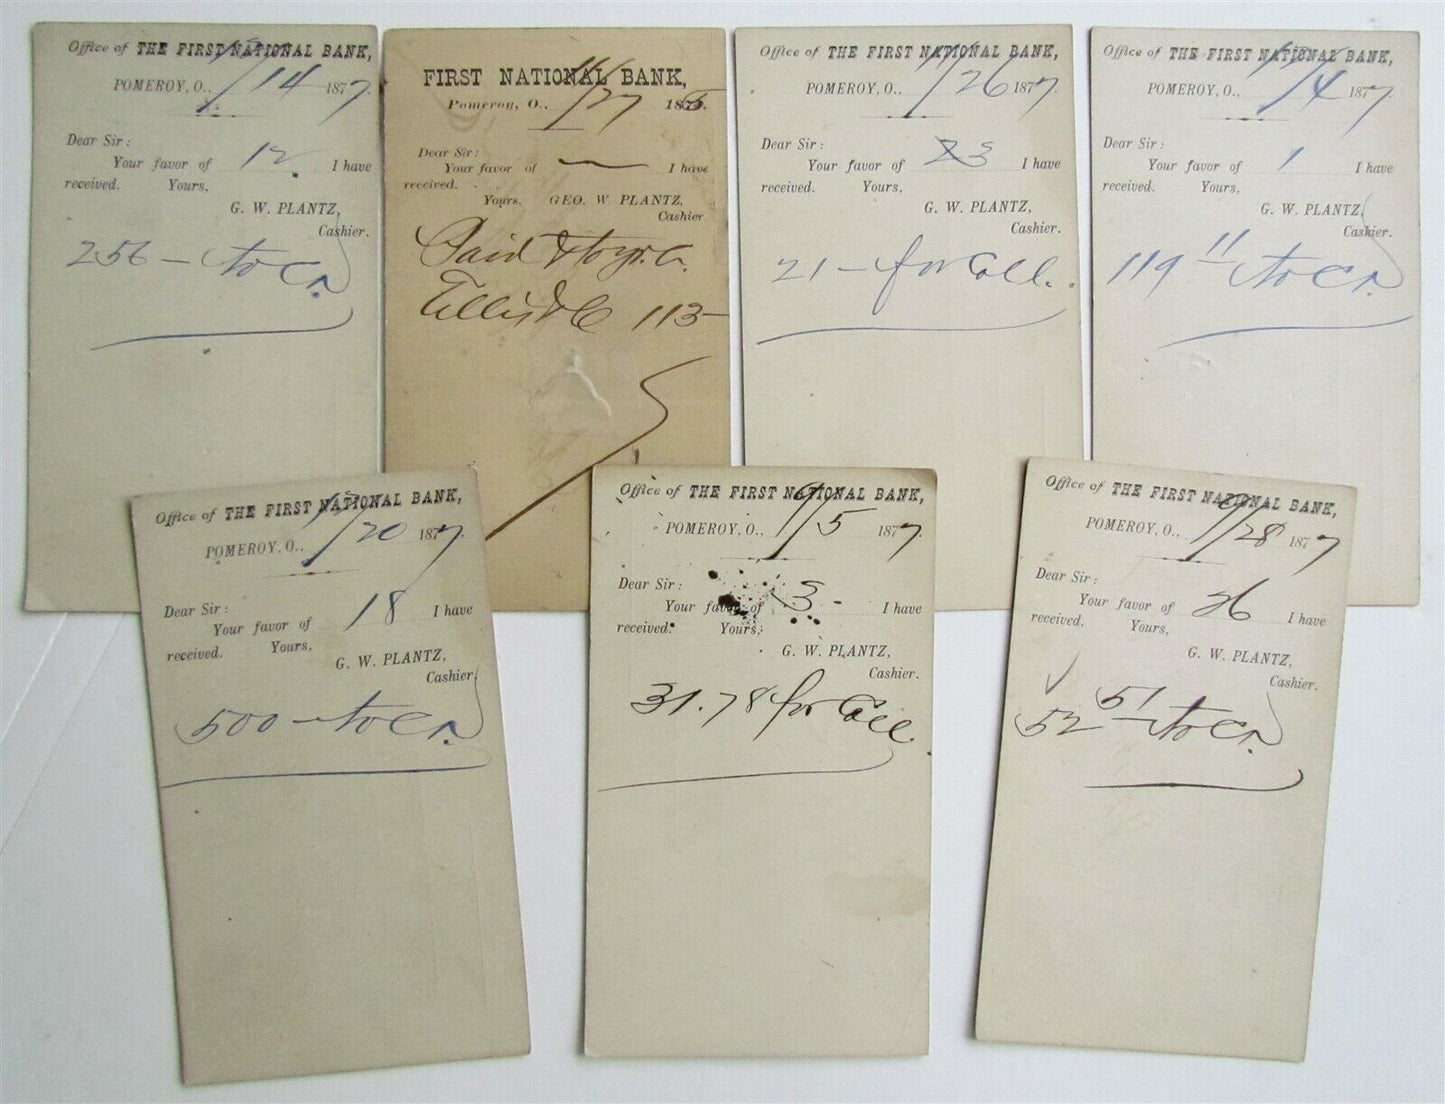 Office of THE FIRST NATIONAL BANK,
POMEROY, O., 1/14 1877.
Dear Sir :
Your favor of 12 I have
received. Yours,
G. W. PLANTZ,
Cashier.
256 — to Cr.
FIRST NATIONAL BANK,
Pomeroy, O., 11/27 187
Dear Sir :
Your favor of — I have
received.
Yours, GEO. W. PLANTZ,
Cashier
Paid
Ellis & Co 113—
Office of THE FIRST NATIONAL BANK,
POMEROY, O., 1/26 1877.
Dear Sir :
Your favor of 23 I have
received. Yours,
G. W. PLANTZ,
Cashier.
21 — for Coll.
Office of THE FIRST NATIONAL BANK,
POMEROY, O., 1/4 1877
Dear Sir :
Your favor of 1 I have
received. Yours,
G. W. PLANTZ,
Cashier.
119 11 to Cr.
Office of THE FIRST NATIONAL BANK,
POMEROY, O., 1/20 1877.
Dear Sir :
Your favor of 18 I have
received. Yours,
G. W. PLANTZ,
Cashier.
500 — to Cr.
Office of THE FIRST NATIONAL BANK,
POMEROY, O., 1/5 1877.
Dear Sir :
Your favor of 3 - I have
received. Yours,
G. W. PLANTZ,
Cashier.
31.78 for Coll.
Office of THE FIRST NATIONAL BANK,
POMEROY, O., 1/28 1877
Dear Sir :
Your favor of 26 I have
received. Yours,
G. W. PLANTZ,
Cashier.
52 51 to Cr.